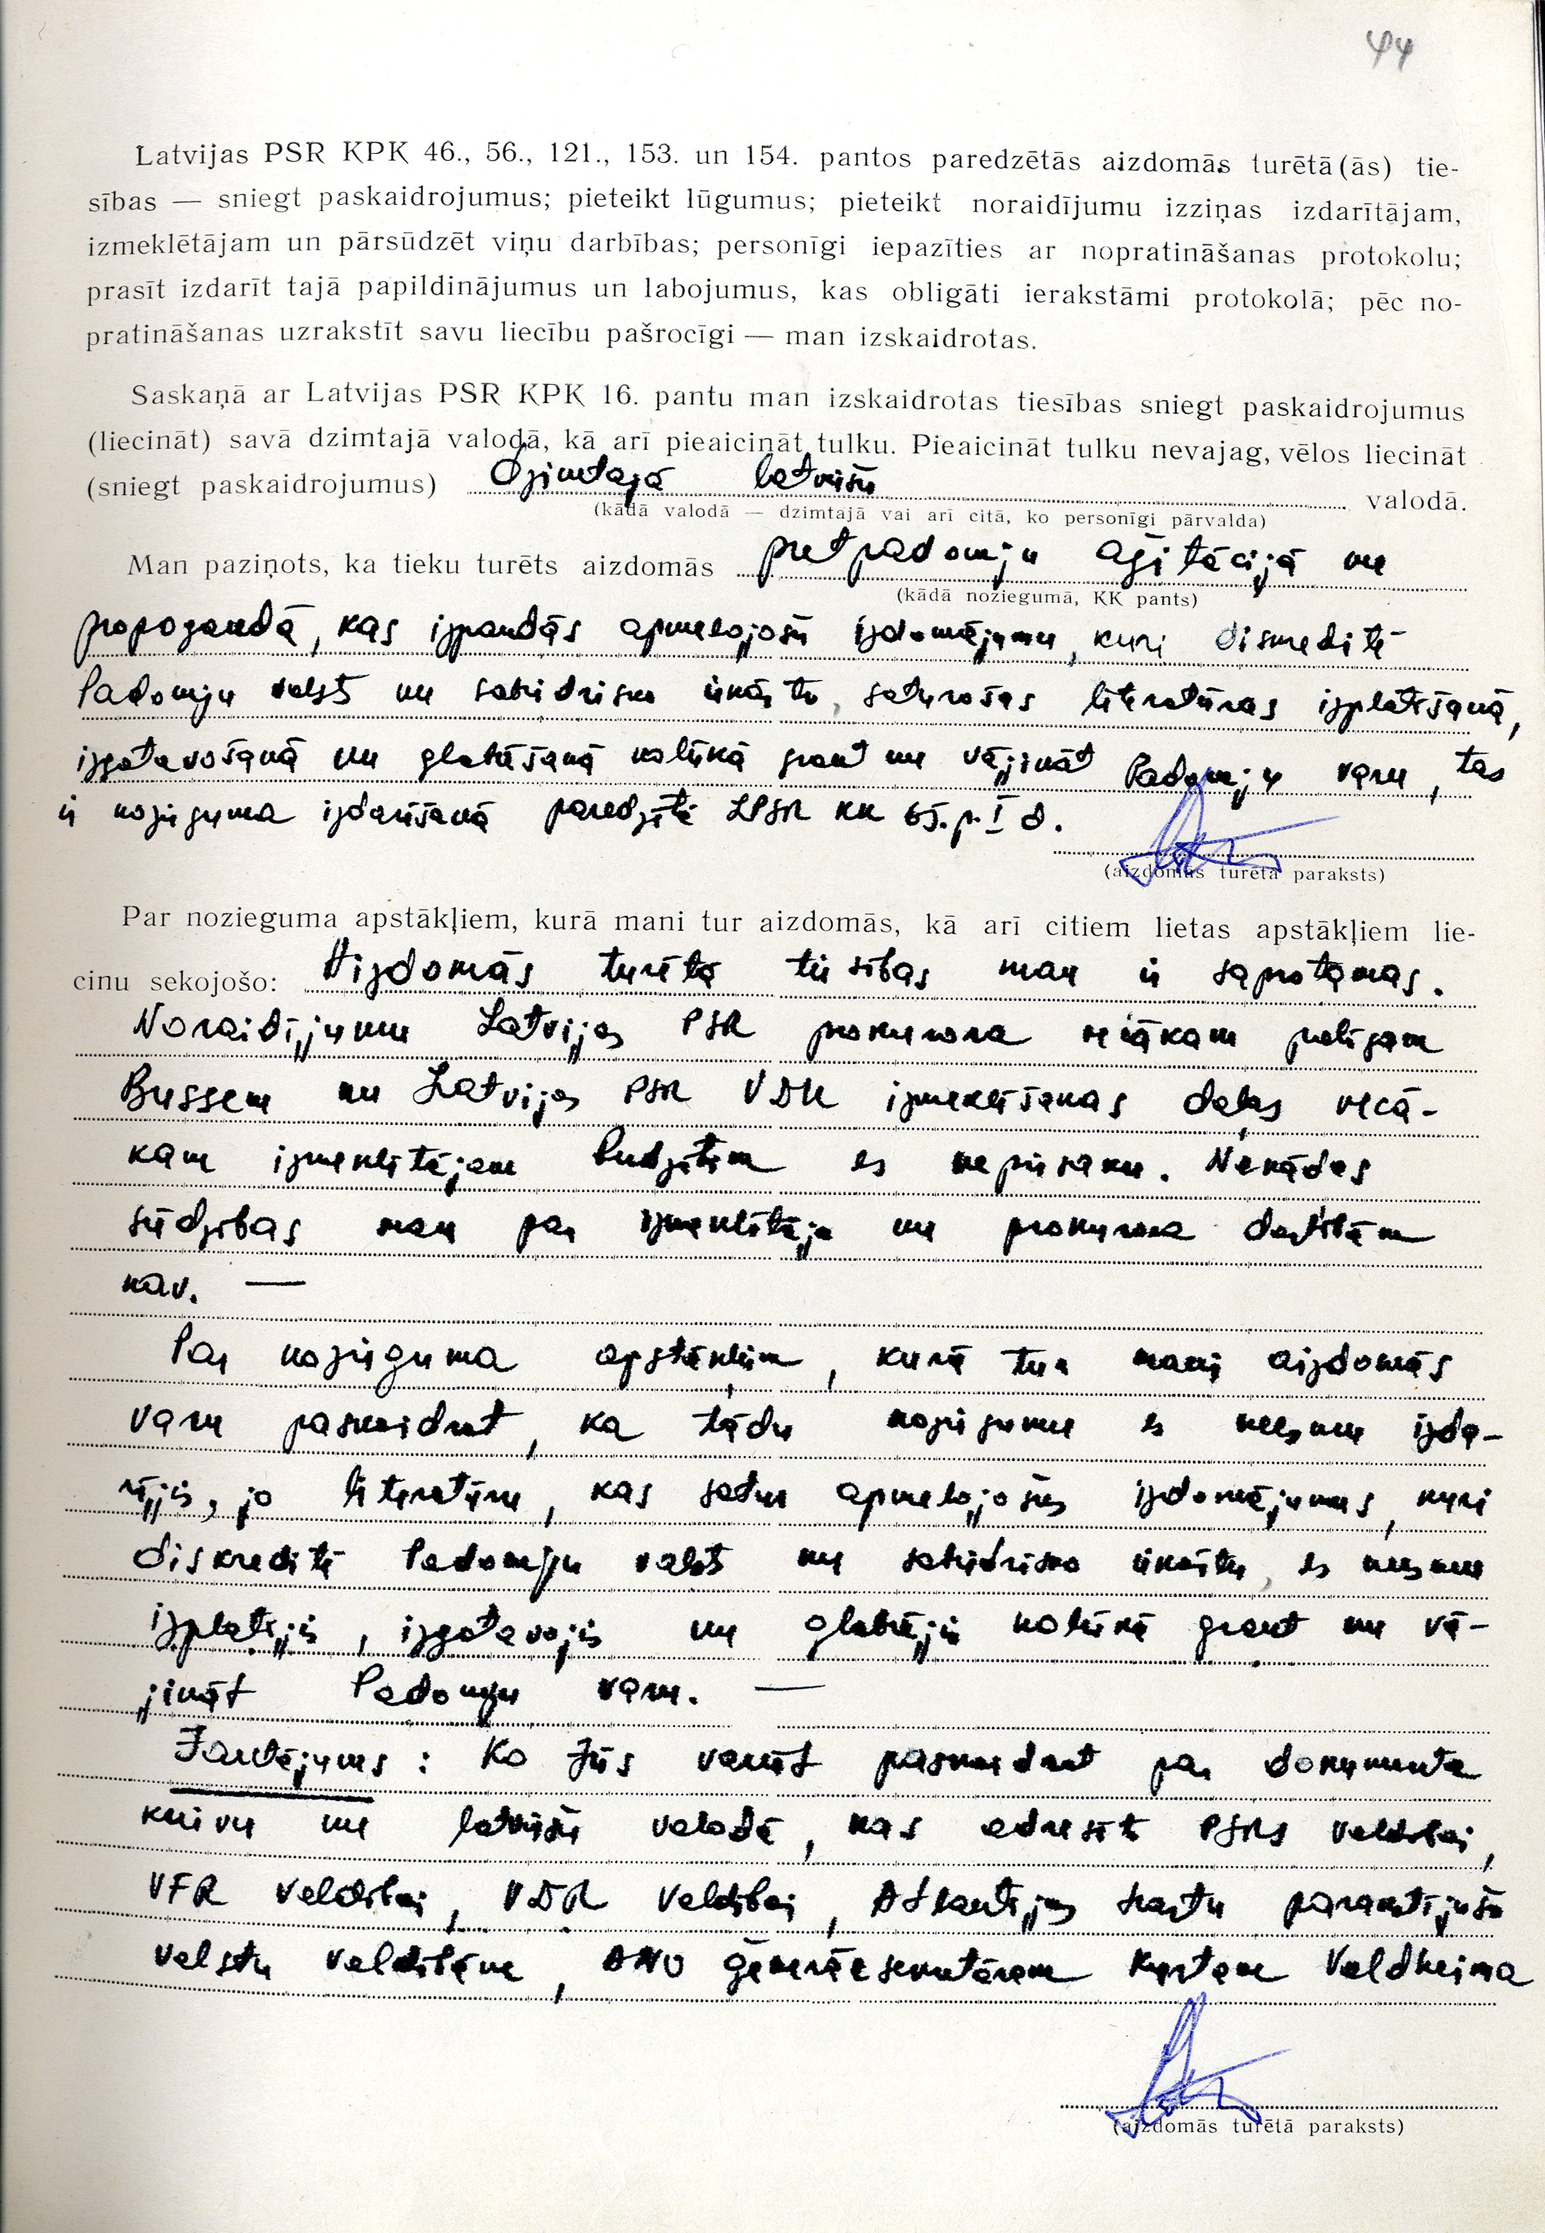 44
Latvijas PSR KPK 46., 56., 121., 153. un 154. pantos paredzētās aizdomās turētā(ās) tie-
sības — sniegt paskaidrojumus; pieteikt lūgumus; pieteikt noraidījumu izziņas izdarītājam,
izmeklētājam un pārsūdzēt viņu darbības; personīgi iepazīties ar nopratināšanas protokolu;
prasīt izdarīt tajā papildinājumus un labojumus, kas obligāti ierakstāmi protokolā; pēc no-
pratināšanas uzrakstīt savu liecību pašrocīgi — man izskaidrotas.
Saskaņā ar Latvijas PSR KPK 16. pantu man izskaidrotas tiesības sniegt paskaidrojumus
(liecināt) savā dzimtajā valodā, kā arī pieaicināt tulku. Pieaicināt tulku nevajag, vēlos liecināt
(sniegt paskaidrojumus) Dzimtajā latviešu valodā.
(kādā valodā — dzimtajā vai arī citā, ko personīgi pārvalda)
Man paziņots, ka tieku turēts aizdomās pretpadomju aģitācijā un
(kādā noziegumā, KK pants)
propogandā, kas izpaudās apmelojošu izdomājumu, kuri diskreditē
Padomju valsti un sabiedrisko iekārtu, saturošas literatūras izplatīšanā,
izgatavošanā un glabāšanā nolūkā graut un vājināt Padomju varu, tas
ir nozieguma izdarīšanā paredzētā LPSR KK 65. p. I d.
(aizdomās turētā paraksts)
Par nozieguma apstākļiem, kurā mani tur aizdomās, kā arī citiem lietas apstākļiem lie-
cinu sekojošo: Aizdomās turētā tiesības man ir saprotamas.
Noraidījumu Latvijas PSR prokurora vecākam palīgam
Bussem un Latvijas PSR VDK izmeklēšanas daļas vecā-
kam izmeklētājam es nepiesaku. Nekādas
sūdzības man par izmeklētāja un prokurora darbībām
nav. —
Par nozieguma apstākļiem, kurā tur mani aizdomās
varu paskaidrot, ka tādu noziegumu es neesmu izda-
rījis, jo literatūru, kas satur apmelojošus izdomājumus, kuri
diskreditē Padomju valsti un sabiedrisko iekārtu, es neesmu
izplatījis, izgatavojis un glabājis nolūkā graut un vā-
jināt Padomju varu. —
Jautājums: Ko Jūs varat paskaidrot par dokumenta
krievu un latviešu valodā, kas adresēts PSRS valdībai,
VFR valdībai, VDR valdībai, Atlantijas hartu parakstījušo
valstu valdībām, ANO ģenerālsekretāram Kurtam Valdheima
(aizdomās turētā paraksts)